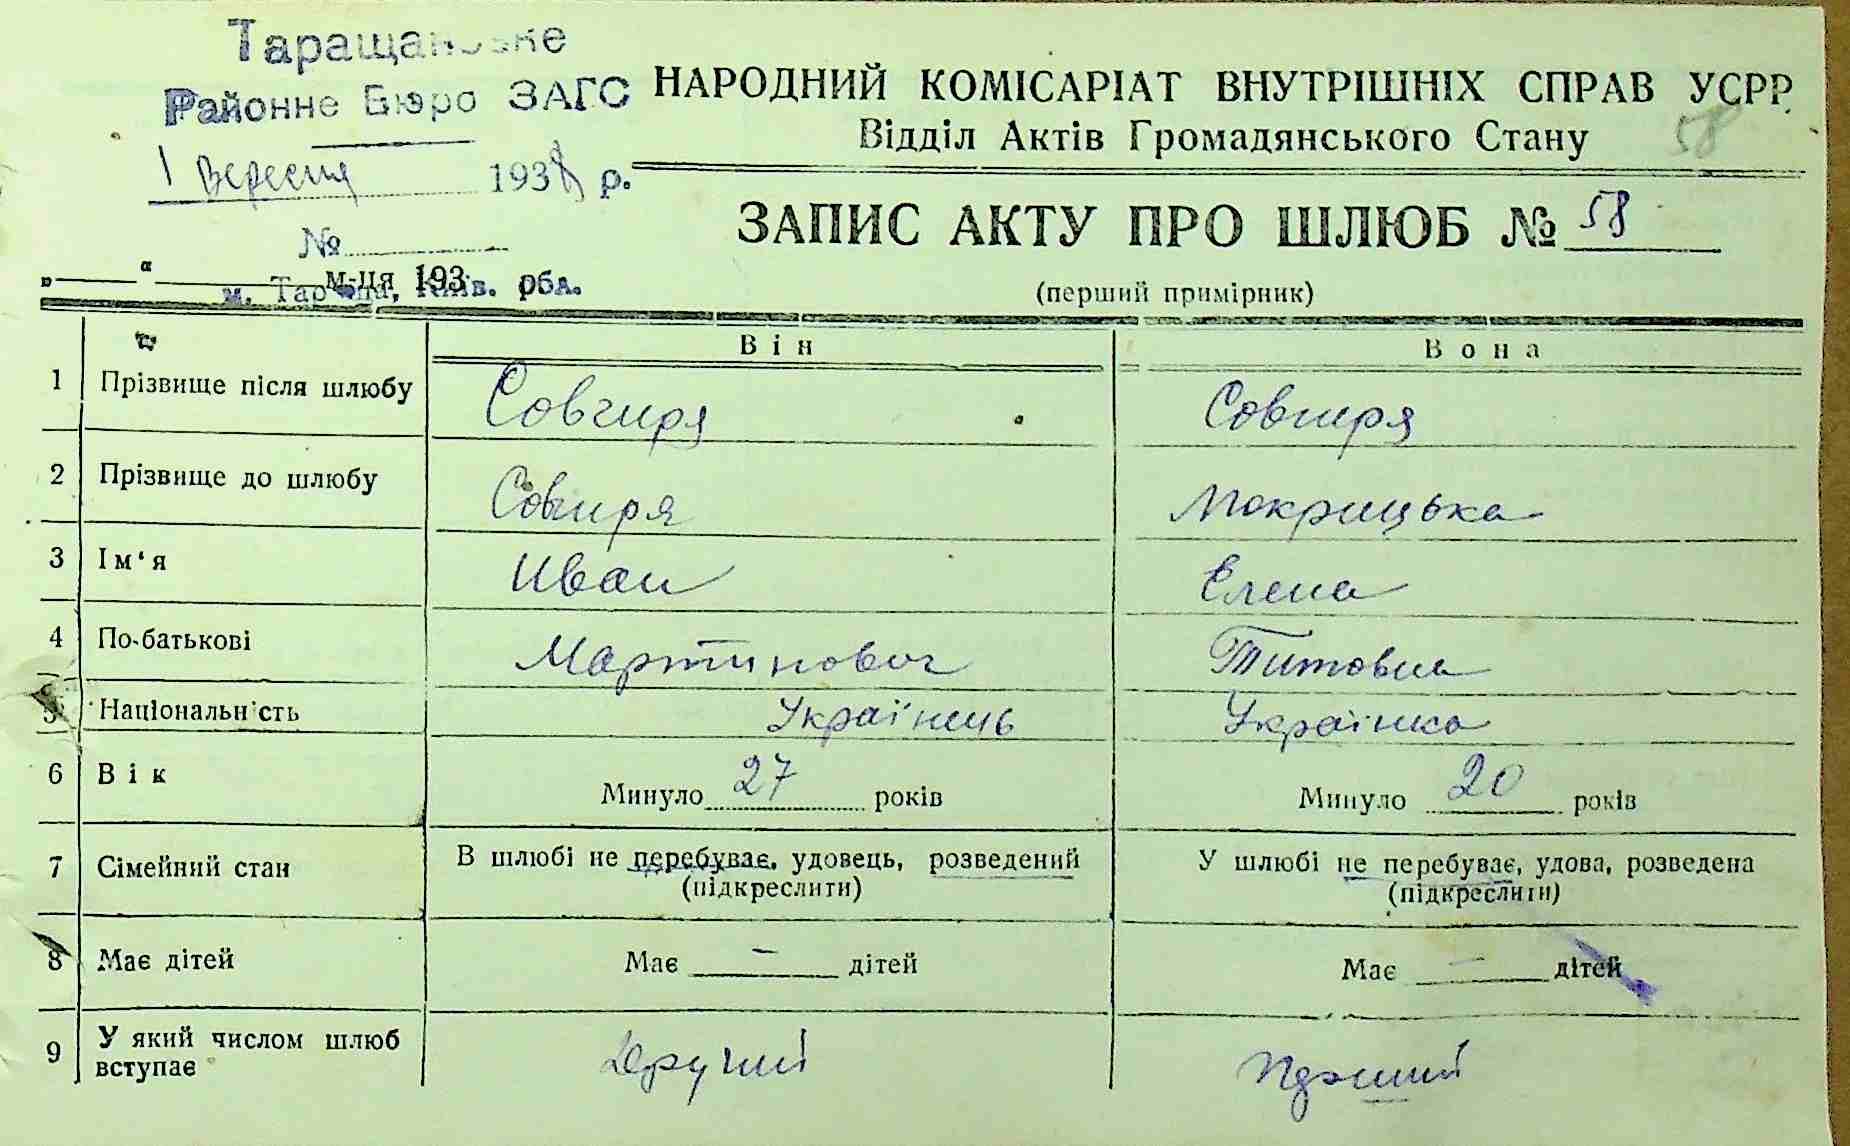 Таращанське
Районне Бюро ЗАГС
1 Вересня 1938 р.
№
м. Тараща, Київ. обл.
„ “ м-ця 193 р.
НАРОДНИЙ КОМІСАРІАТ ВНУТРІШНІХ СПРАВ УСРР
Відділ Актів Громадянського Стану
58
ЗАПИС АКТУ ПРО ШЛЮБ № 58
(перший примірник)
Він Вона
1 Прізвище після шлюбу Совгиря Совгиря
2 Прізвище до шлюбу Совгиря Мокрицька
3 Ім‘я Иван Елена
4 По-батькові Мартинович Титовна
5 Національність Українець Українка
6 Вік Минуло 27 років Минуло 20 років
7 Сімейний стан В шлюбі не перебуває, удовець, розведений У шлюбі не перебуває, удова, розведена
(підкреслити) (підкреслити)
8 Має дітей Має — дітей Має — дітей
9 У який числом шлюб вступає Другий Перший